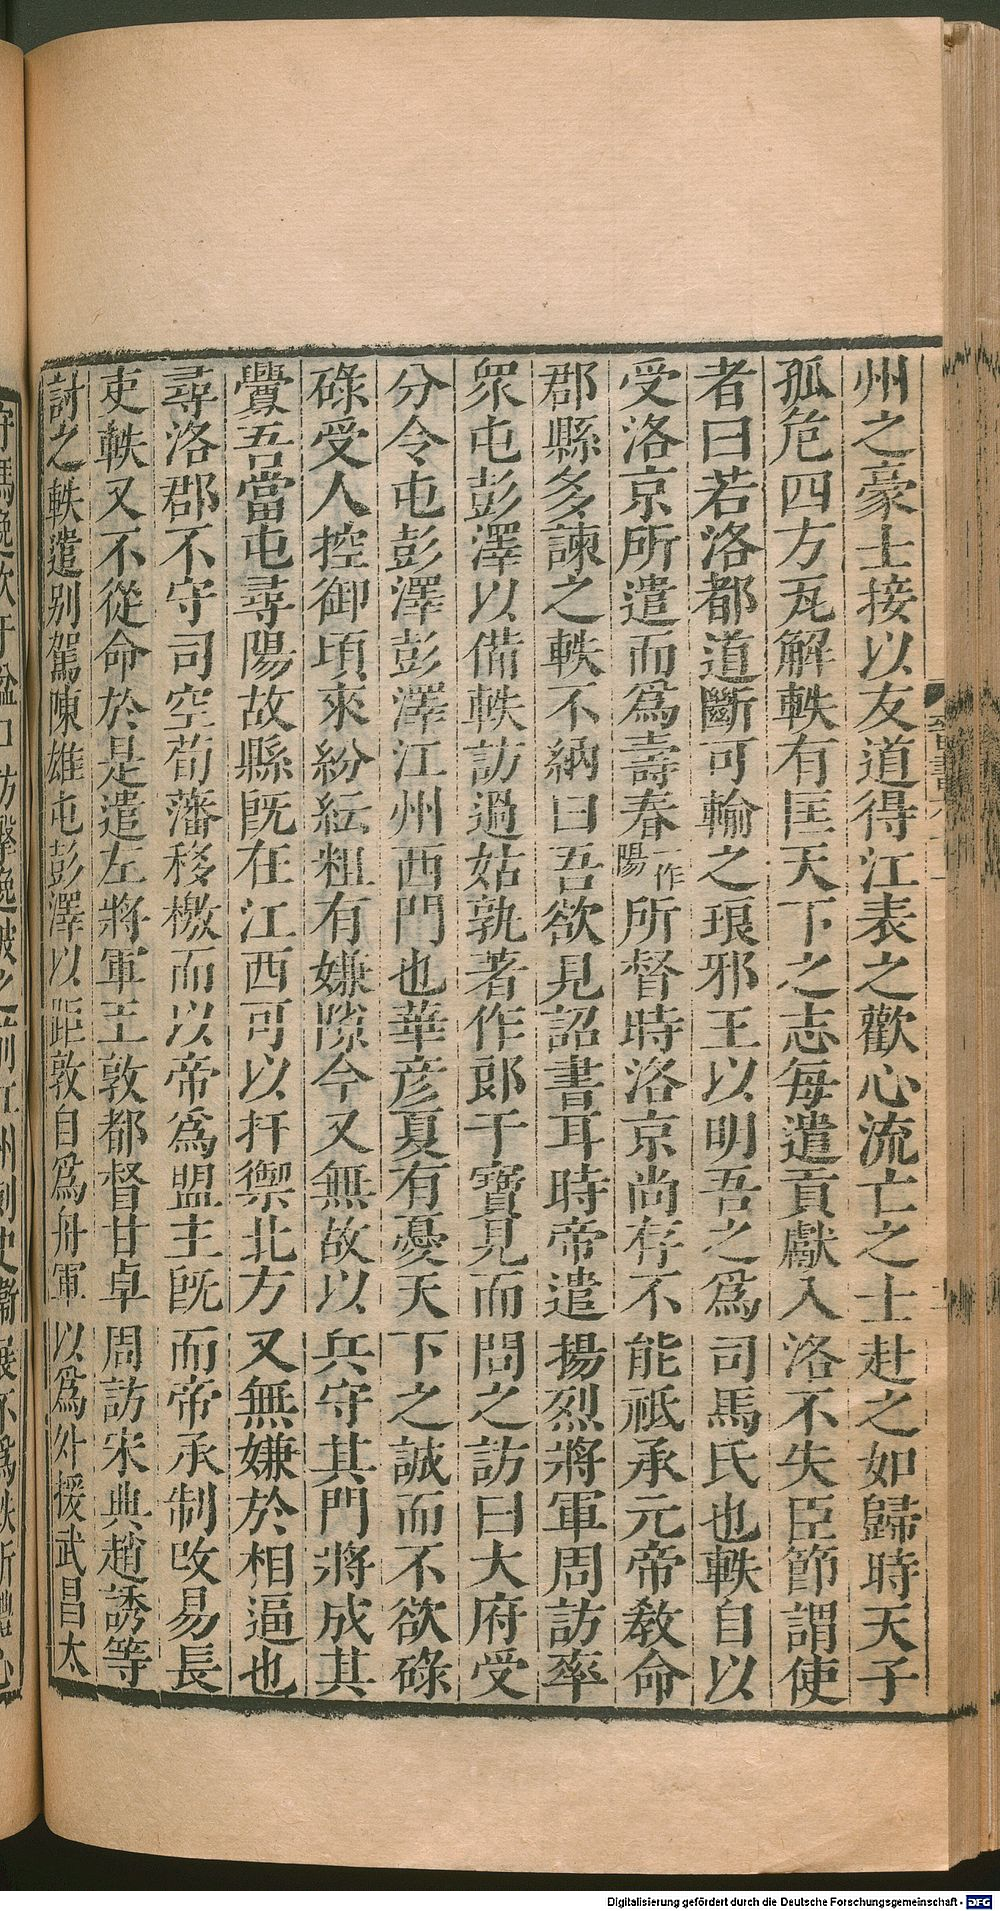 州之豪士接以友道得江表之歡心流亡之士赴之如歸時天子
孤危四方瓦解軼有匡天下之志每遣貢獻入洛不失臣節謂使
者曰若洛都道斷可輸之琅邪王以明吾之爲司馬氏也軼自以
受洛京所遣而爲壽春一作陽所督時洛京尚存不能祗承元帝教命
郡縣多諫之軼不納曰吾欲見詔書耳時帝遣揚烈將軍周訪率
衆屯彭澤以備軼訪過姑孰著作郎干寶見而問之訪曰大府受
分令屯彭澤彭澤江州西門也華彦夏有憂天下之誠而不欲碌
碌受人控御頃來紛紜粗有嫌隙今又無故以兵守其門將成其
釁吾當屯尋陽故縣旣在江西可以扞禦北方又無嫌於相逼也
尋洛郡不守司空荀藩移檄而以帝爲盟主旣而帝承制改易長
吏軼又不從命於是遣左將軍王敦都督甘卓周訪宋典趙誘等
討之軼遣别駕陳雄屯彭澤以距敦自爲舟軍以爲外援武昌太
Digitalisierung gefördert durch die Deutsche Forschungsgemeinschaft - DFG